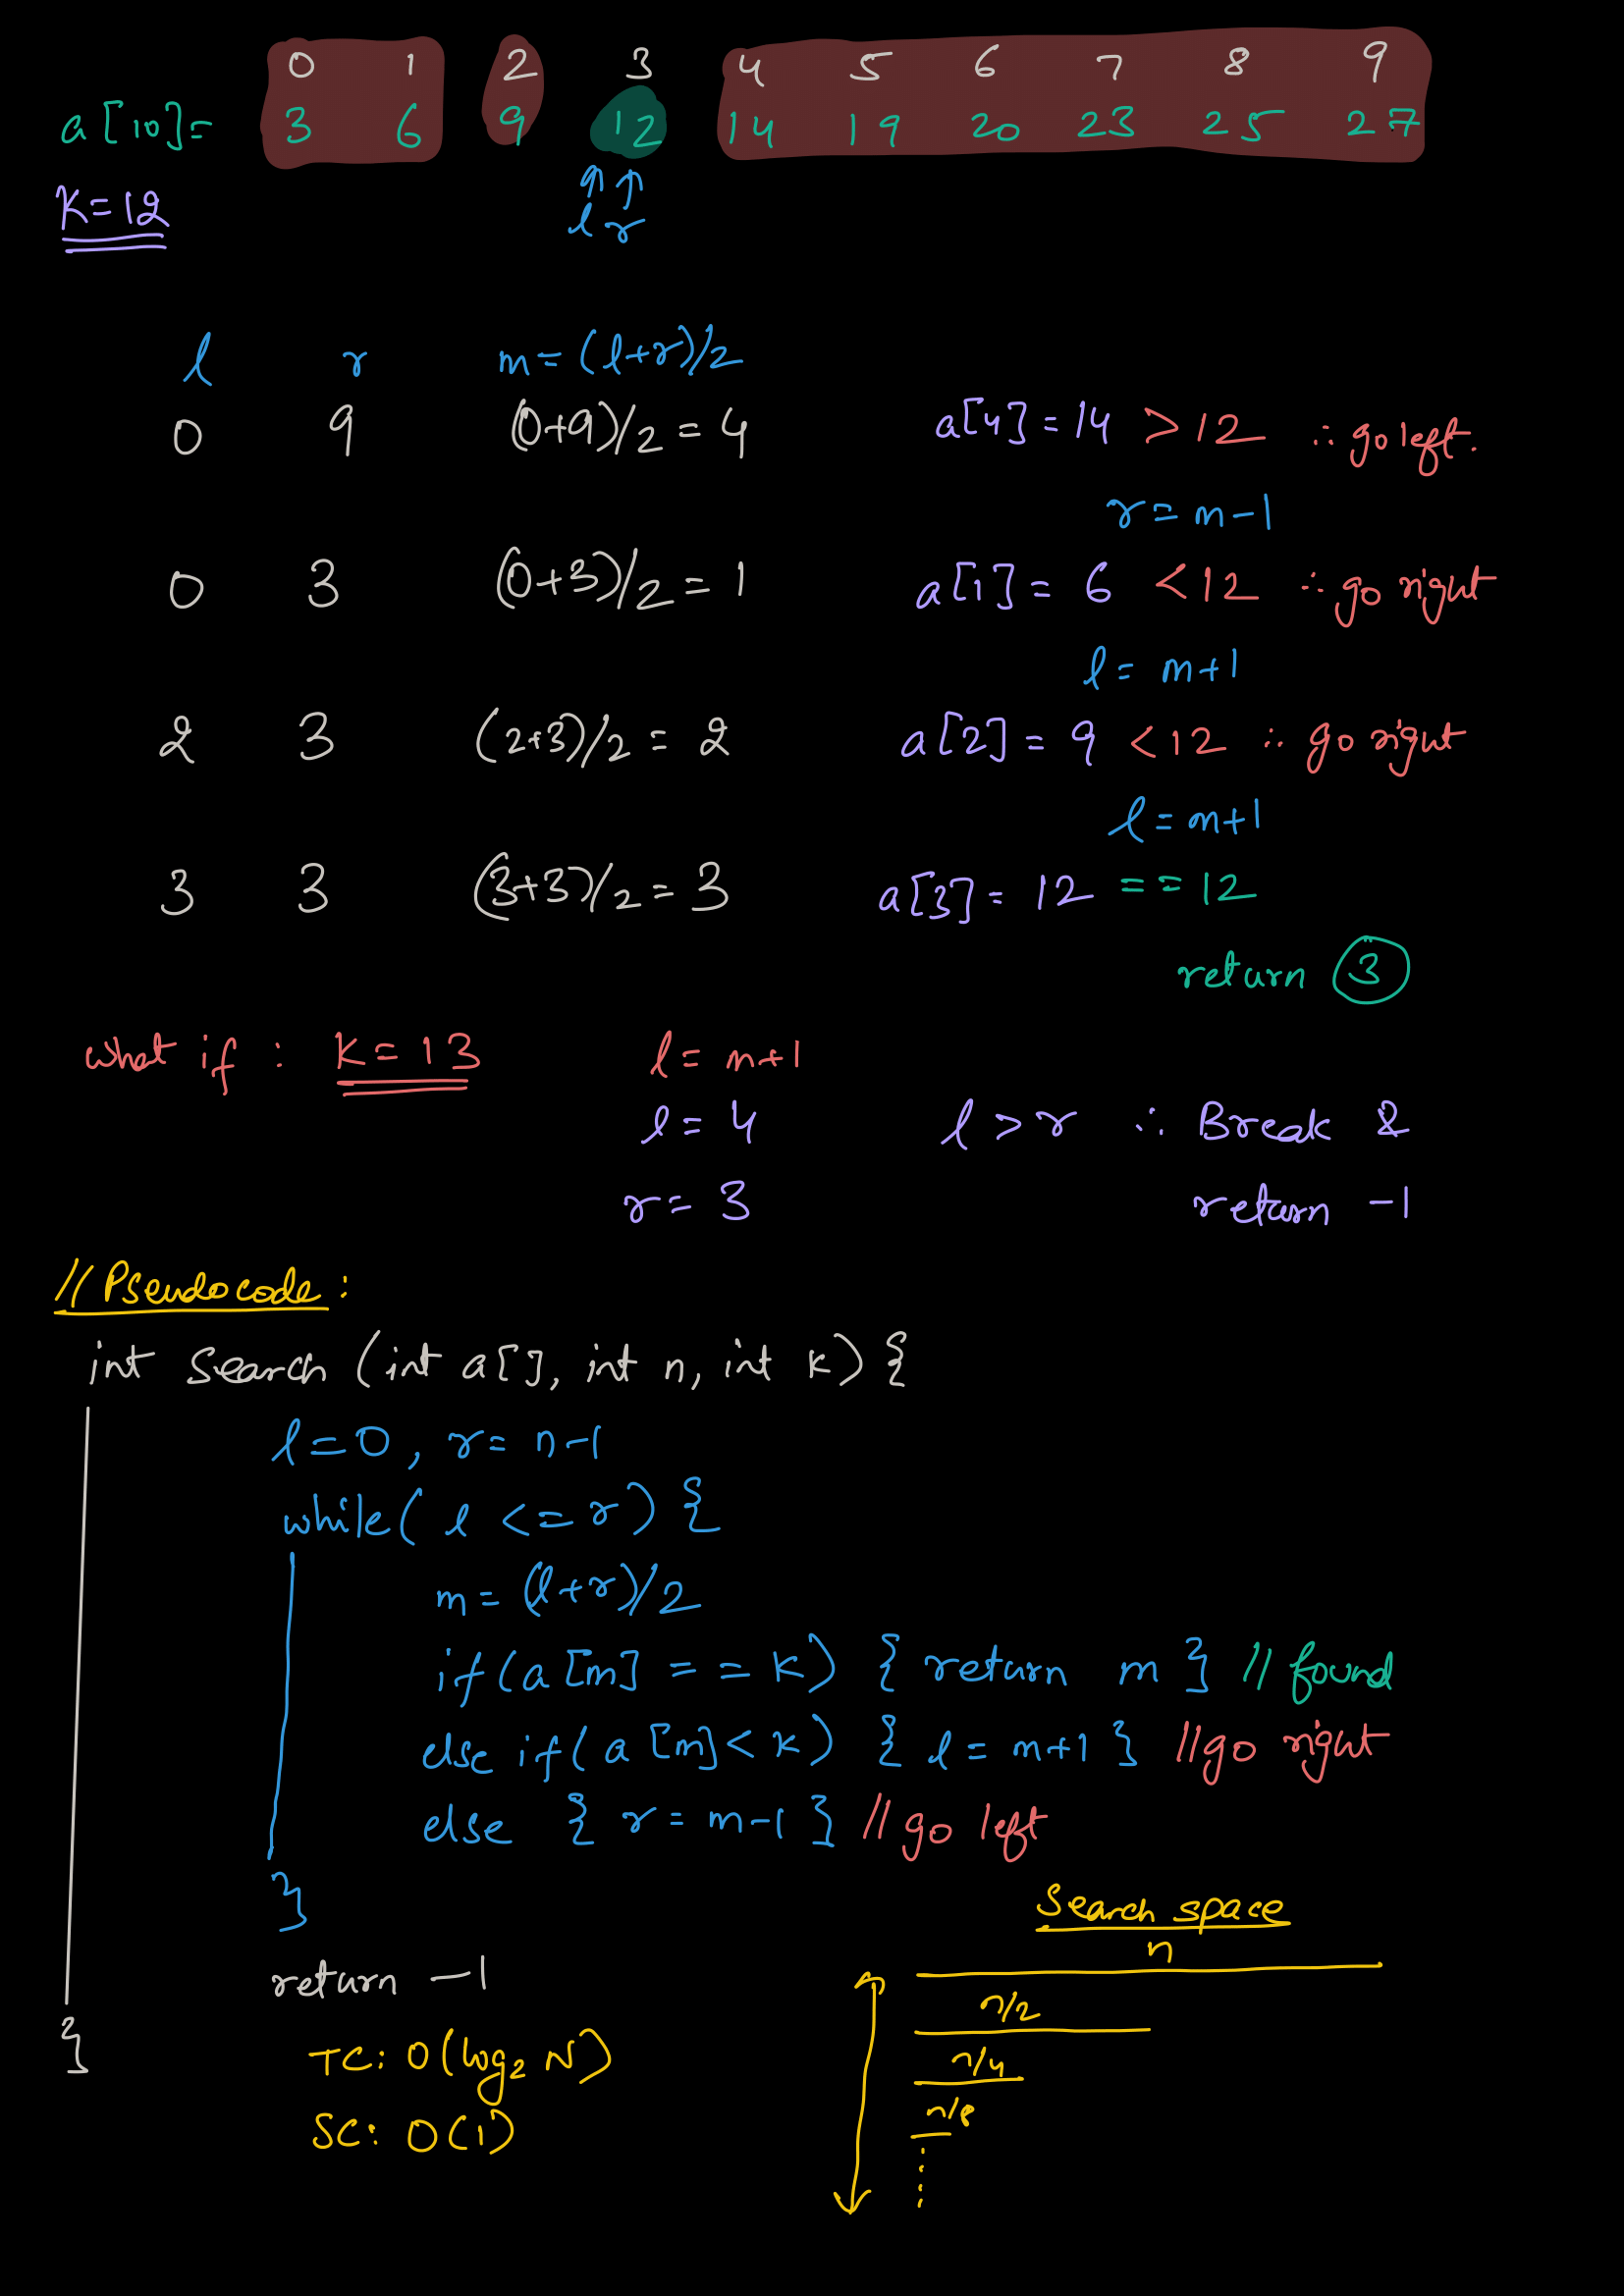 0 1 2 3 4 5 6 7 8 9
a[10]= 3 6 9 12 14 19 20 23 25 27
K=12
↑ ↑
l r
l r m=(l+r)/2
0 9 (0+9)/2 = 4 a[4] = 14 > 12 ∴ go left.
r = m-1
0 3 (0+3)/2 = 1 a[1] = 6 < 12 ∴ go right
l = m+1
2 3 (2+3)/2 = 2 a[2] = 9 < 12 ∴ go right
l = m+1
3 3 (3+3)/2 = 3 a[3] = 12 == 12
return 3
what if : K=13 l = m+1
l = 4 l > r ∴ Break &
r = 3 return -1
//Pseudocode:
int search (int a[], int n, int k) {
l=0, r=n-1
while( l <= r) {
m = (l+r)/2
if(a[m] == k) { return m } // found
else if(a[m] < k) { l = m+1 } //go right
else { r = m-1 } //go left
}
Search space
n
return -1
n/2
}
TC: O(log2 N)
n/4
n/8
SC: O(1)